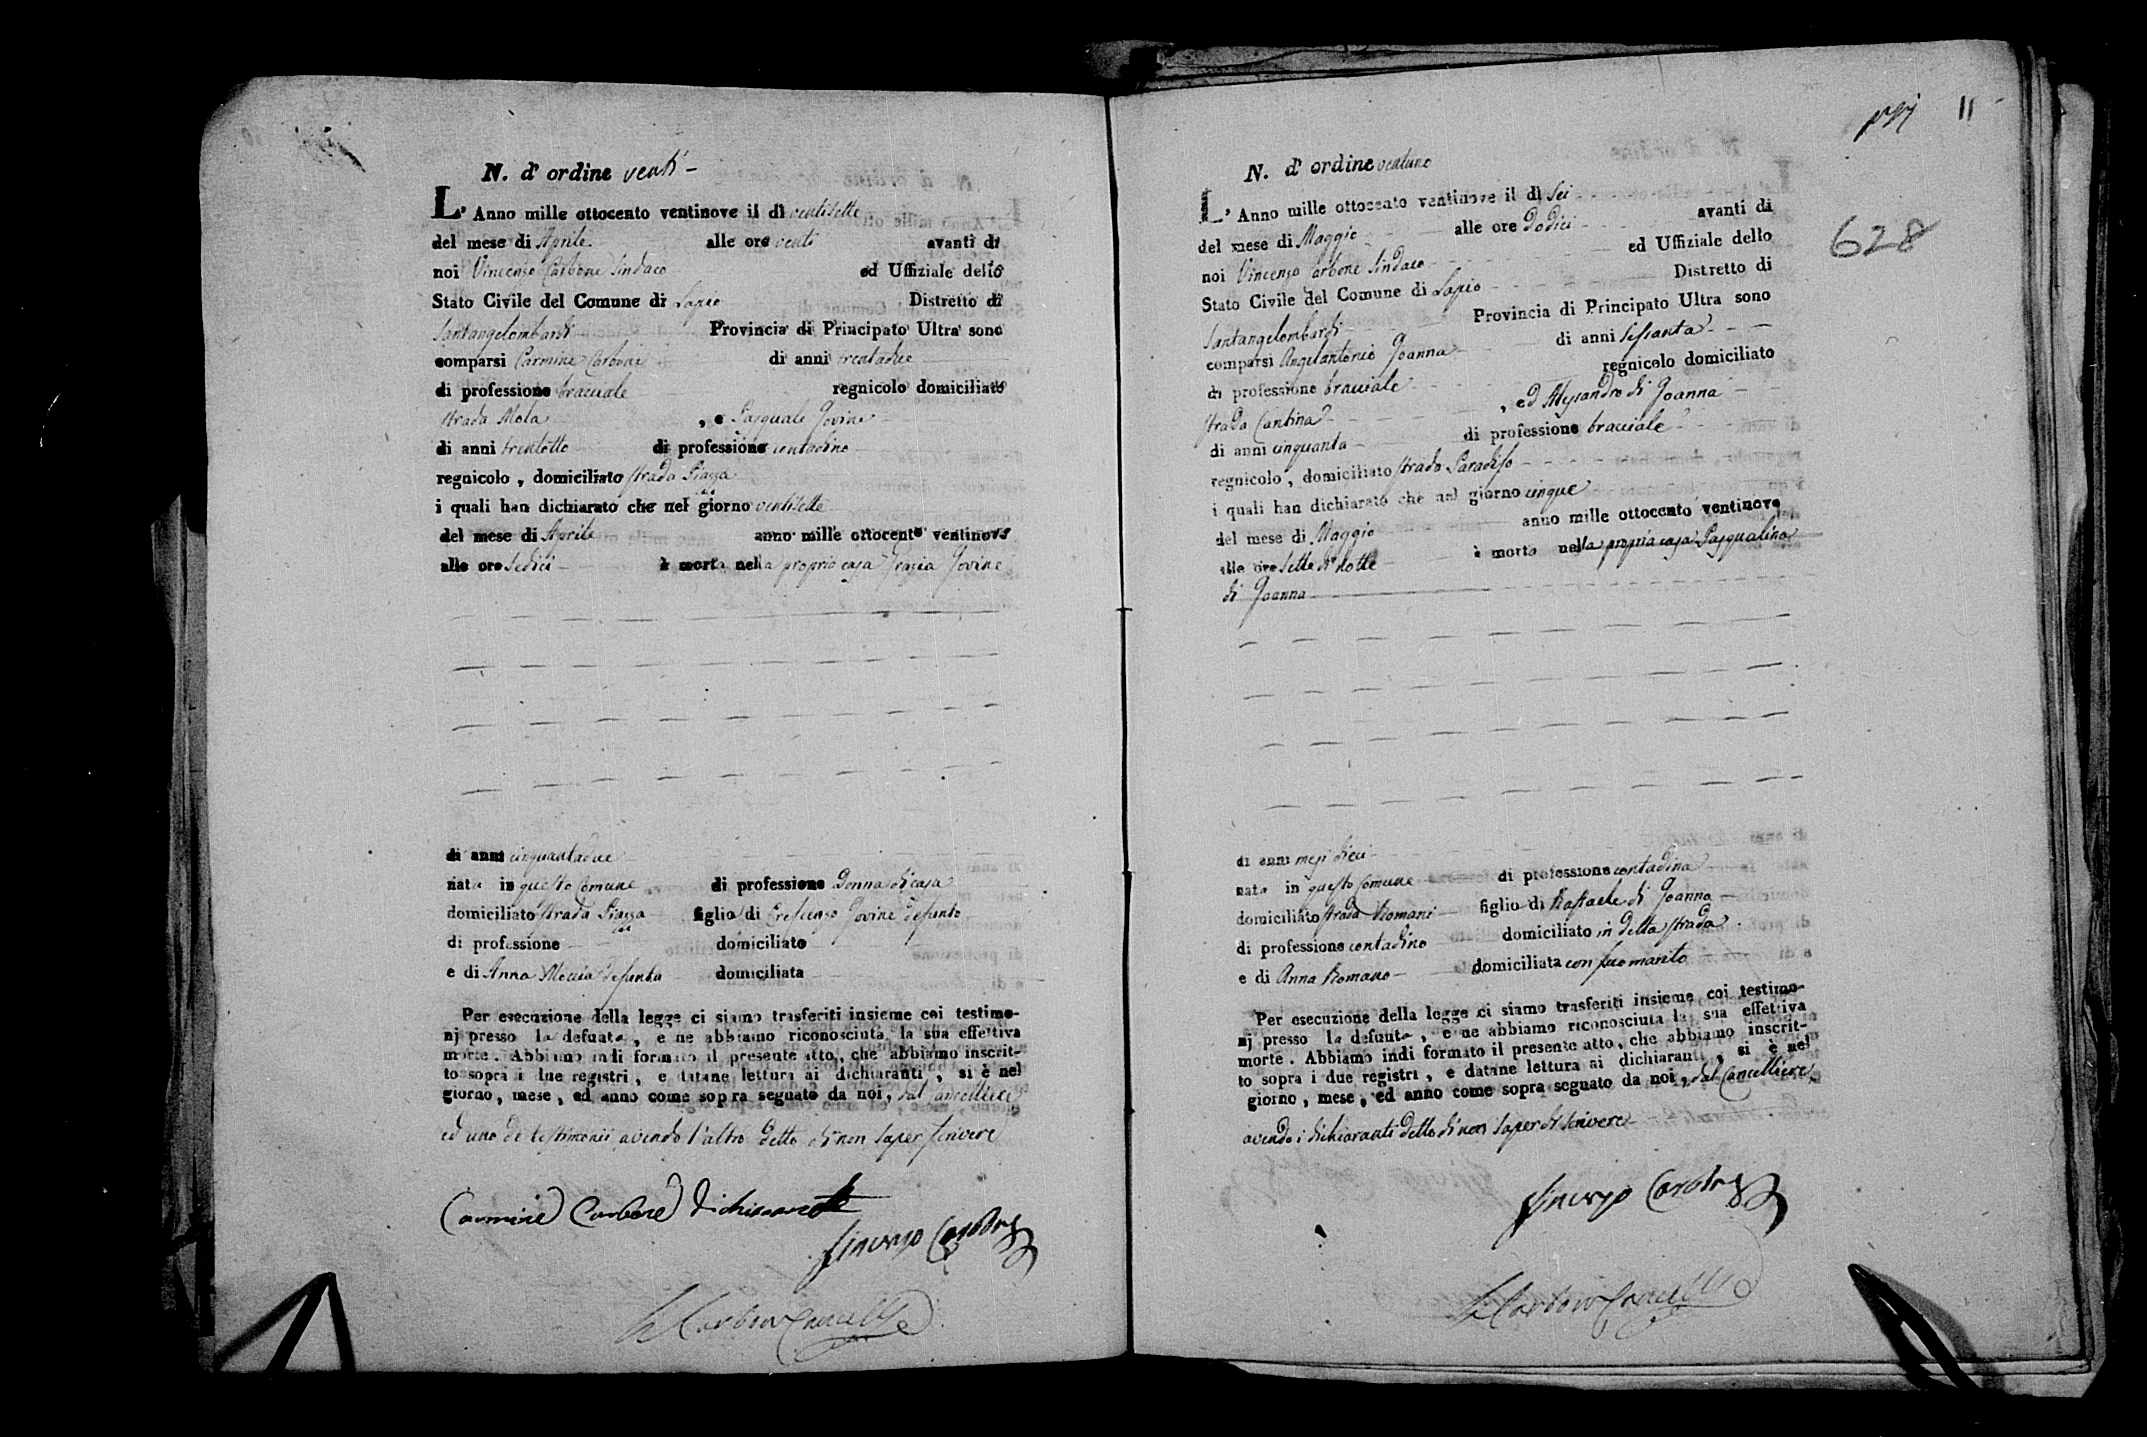 N. d' ordine venti
L' Anno mille ottocento ventinove il dì ventisette
del mese di Aprile alle ore venti avanti di
noi Vincenzo Carbone Sindaco ed Uffiziale dello
Stato Civile del Comune di Lapio Distretto di
Santangelombardi Provincia di Principato Ultra sono
comparsi Carmine Carbone di anni trentadue
di professione bracciale regnicolo domiciliato
strada Mola , e Pasquale Jovine
di anni trentotto di professione contadino
regnicolo , domiciliato strada Piazza
i quali han dichiarato che nel giorno ventisette
del mese di Aprile anno mille ottocento ventinove
alle ore sedici è morta nella propria casa Grazia Jovine
di anni cinquantadue
nata in questo Comune di professione Donna di casa
domiciliato strada Piazza figlio di Crescenzo Jovine defunto
di professione domiciliato
e di Anna Meccia defunta domiciliata
Per esecuzione della legge ci siamo trasferiti insieme coi testimo-
nj presso la defunta , e ne abbiamo riconosciuta la sua effettiva
morte . Abbiamo indi formato il presente atto , che abbiamo inscrit-
to sopra i due registri , e datane lettura ai dichiaranti , si è nel
giorno , mese , ed anno come sopra segnato da noi , dal Cancelliere
ed uno de testimonii avendo l'altro detto di non saper scrivere
Carmine Carbone dichiarante
Vincenzo Carbone
Carbone Cancelle
11
N. d' ordine ventuno
628
L' Anno mille ottocento ventinove il dì sei
del mese di Maggio alle ore dodici avanti di
noi Vincenzo Carbone Sindaco ed Uffiziale dello
Stato Civile del Comune di Lapio Distretto di
Santangelombardi Provincia di Principato Ultra sono
comparsi Angelantonio Joanna di anni sessanta
di professione bracciale regnicolo domiciliato
strada Cantina , ed Alessandro di Joanna
di anni cinquanta di professione bracciale
regnicolo , domiciliato strada Paradiso
i quali han dichiarato che nel giorno cinque
del mese di Maggio anno mille ottocento ventinove
alle ore sette di notte è morta nella propria casa Pasqualina
di Joanna
di anni mesi dieci
nata in questo Comune di professione contadina
domiciliato strada Romani figlio di Raffaele di Joanna
di professione contadino domiciliato in detta strada
e di Anna Romano domiciliata con suo marito
Per esecuzione della legge ci siamo trasferiti insieme coi testimo-
nj presso la defunta , e ne abbiamo riconosciuta la sua effettiva
morte . Abbiamo indi formato il presente atto , che abbiamo inscrit-
to sopra i due registri , e datane lettura ai dichiaranti , si è nel
giorno , mese , ed anno come sopra segnato da noi , dal Cancelliere
avendo i dichiaranti detto di non saper di scrivere
Vincenzo Carbone
Carbone Cancelle